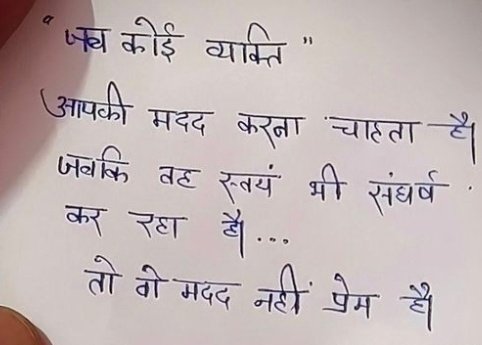 "जब कोई व्यक्ति"
आपकी मदद करना चाहता है।
जबकि वह स्वयं भी संघर्ष
कर रहा है। ...
तो वो मदद नहीं प्रेम है।